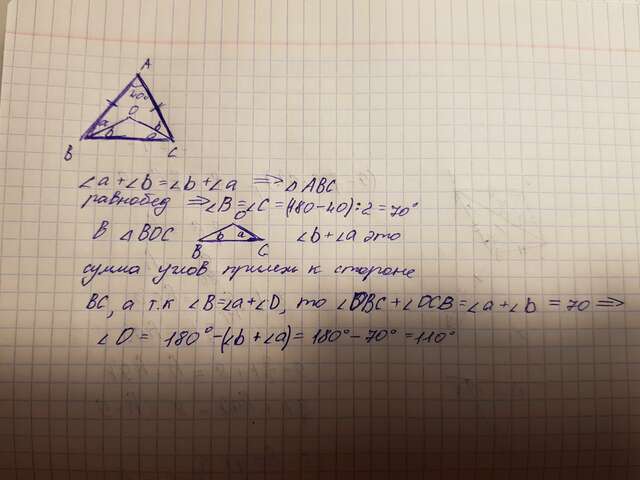 A
40°
O
a
b
b
a
B
C
∠a+∠b=∠b+∠a ⟹ △ABC
равнобед ⟹∠B=∠C=(180-40):2=70°
В △BOC
O
b
a
B
C
∠b+∠a это
сумма углов прилеж к стороне
BC, а т.к ∠B=∠a+∠D, то ∠OBC+∠OCB=∠a+∠b=70⟹
∠O= 180°-(∠b+∠a)=180°-70°=110°